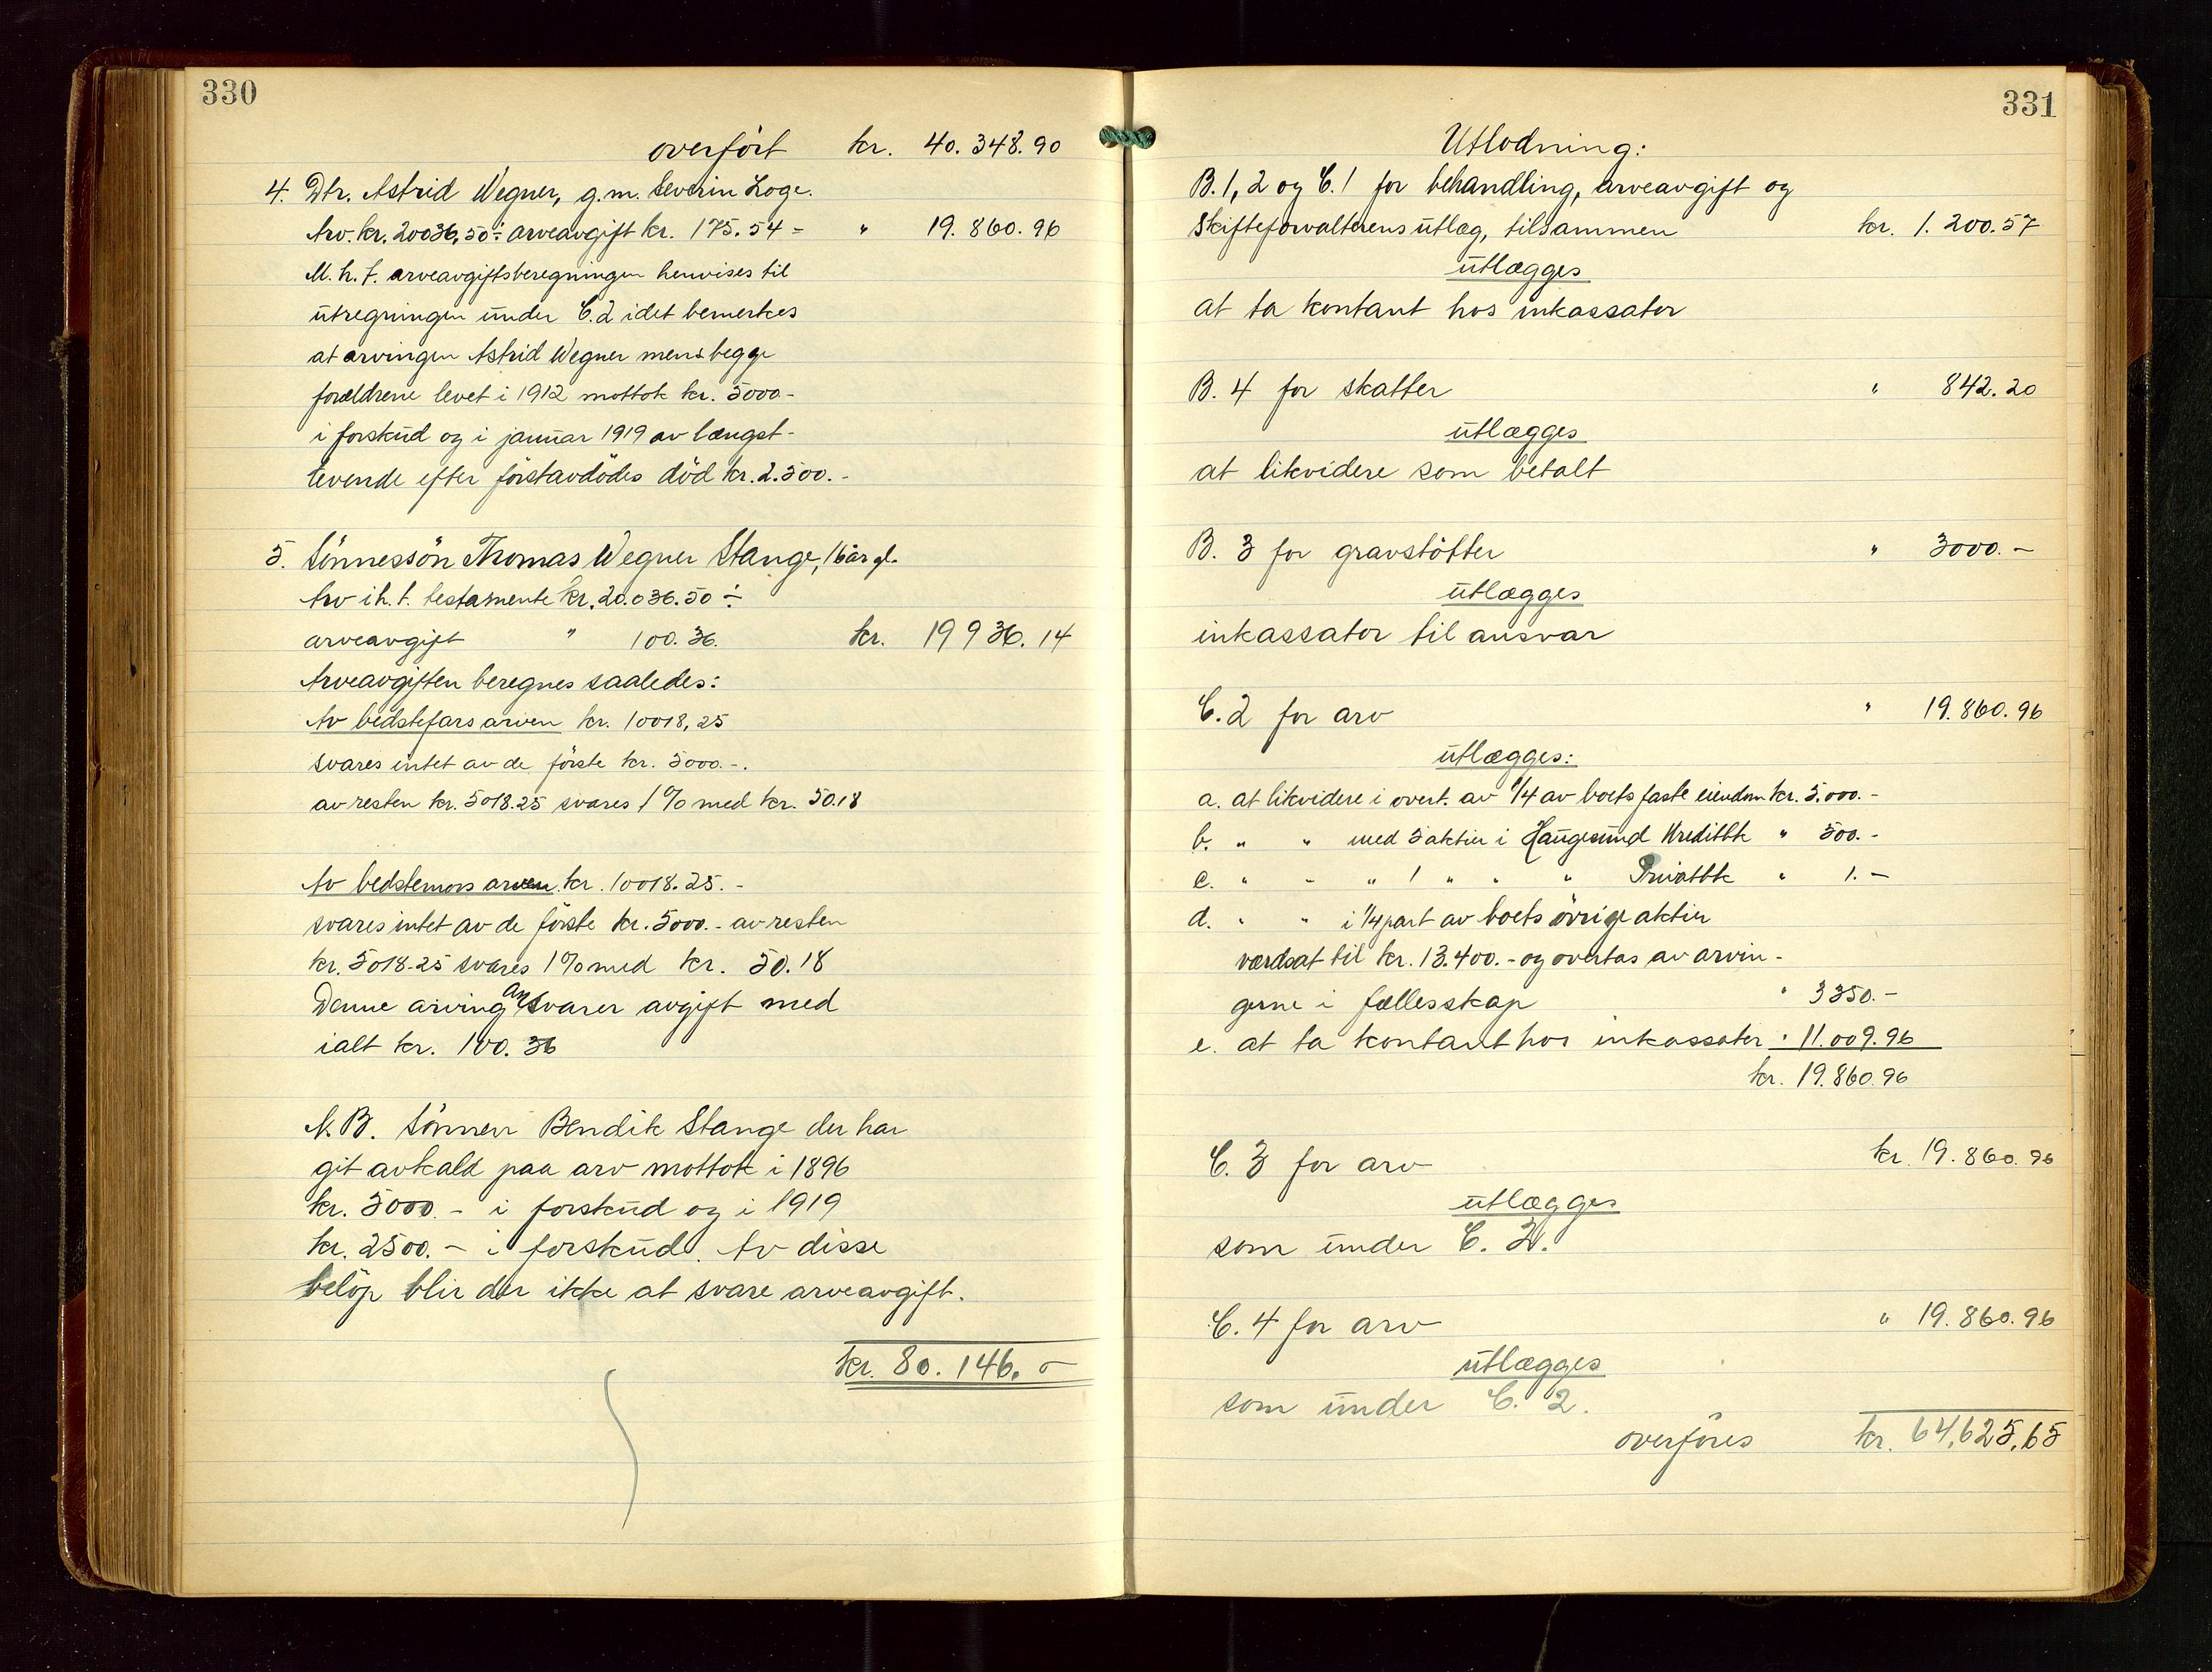 330
overført kr. 40.348.90
4. Dtr. Astrid Wegner, g.m. Severin Loge.
Arv. kr. 20036,50 ÷ arveavgift kr. 175.54 = " 19.860.96
M.h.t. arveavgiftsberegningen henvises til
utregningen under C.2 idet bemerkes
at arvingen Astrid Wegner mens begge
forældrene levet i 1912 mottok kr. 5000.-
i forskud og i januar 1919 av længst-
levende efter førstavdødes død kr. 2.500.-
5. Sønnesøn Thomas Wegner Stange, 16 år gl.
Arv i h.t. testamente kr. 20.036.50 ÷
arveavgift " 100.36. kr. 19936.14
Arveavgiften beregnes saaledes:
Av bedstefars arven kr. 10018,25
svares intet av de første kr. 5000.-.
av resten kr. 5018.25 svares 1% med kr. 50.18
Av bedstemors arven kr. 10018.25.-
svares intet av de første kr. 5000.- av resten
kr. 5018.25 svares 1% med kr. 50.18
Denne arving ansvarer avgift med
ialt kr. 100.36
N.B. Sønnen Bendik Stange der har
git avkald paa arv mottok i 1896
kr. 5000.- i forskud og i 1919
kr. 2500.- i forskud. Av disse
beløp blir der ikke at svare arveavgift.
kr. 80.146.-
331
Utlodning:
B.1, 2 og C.1 for behandling, arveavgift og
skifteforvalterens utlæg, tilsammen kr. 1.200.57
utlægges
at ta kontant hos inkassator
B. 4 for skatter " 842.20
utlægges
at likvidere som betalt
B. 3 for gravstøtter " 3000.-
utlægges
inkassator til ansvar
C.2 for arv " 19.860.96
utlægges:
a. at likvidere i overt. av 1/4 av boets faste eiendom kr. 5.000.-
b. " " med 5 aktier i Haugesund Kreditbk " 500.-
c. " " " 1 " " " Privatbk " 1.-
d. " " i 1/4 part av boets øvrige aktier
værdsat til kr. 13.400.- og overtas av arvin-
gerne i fællesskap " 3350.-
e. at ta kontant hos inkassator " 11.009.96
kr. 19.860.96
C. 3 for arv kr. 19.860.96
utlægges
som under C. 2.
C. 4 for arv " 19.860.96
utlægges
som under C. 2.
overføres kr. 64,625,65